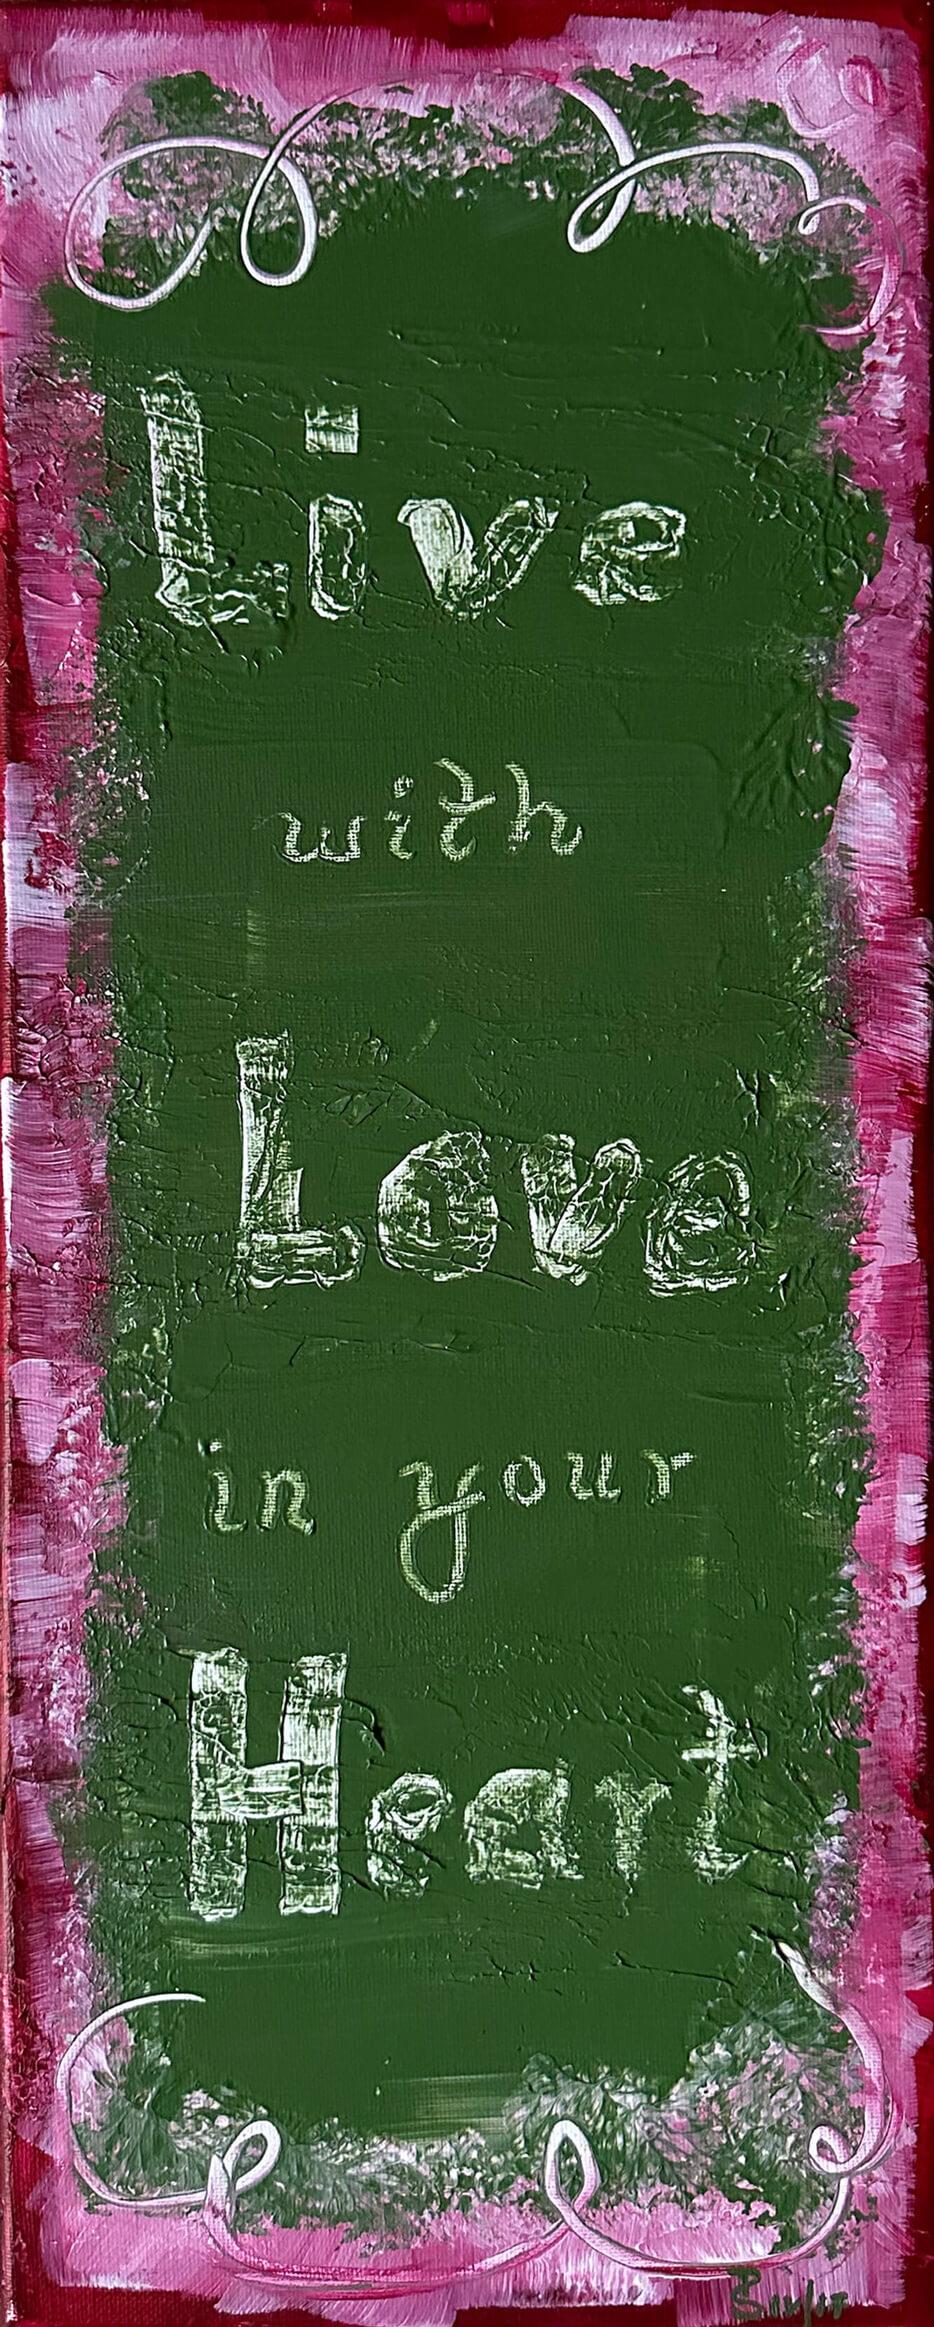 Live
with
Love
in your
Heart